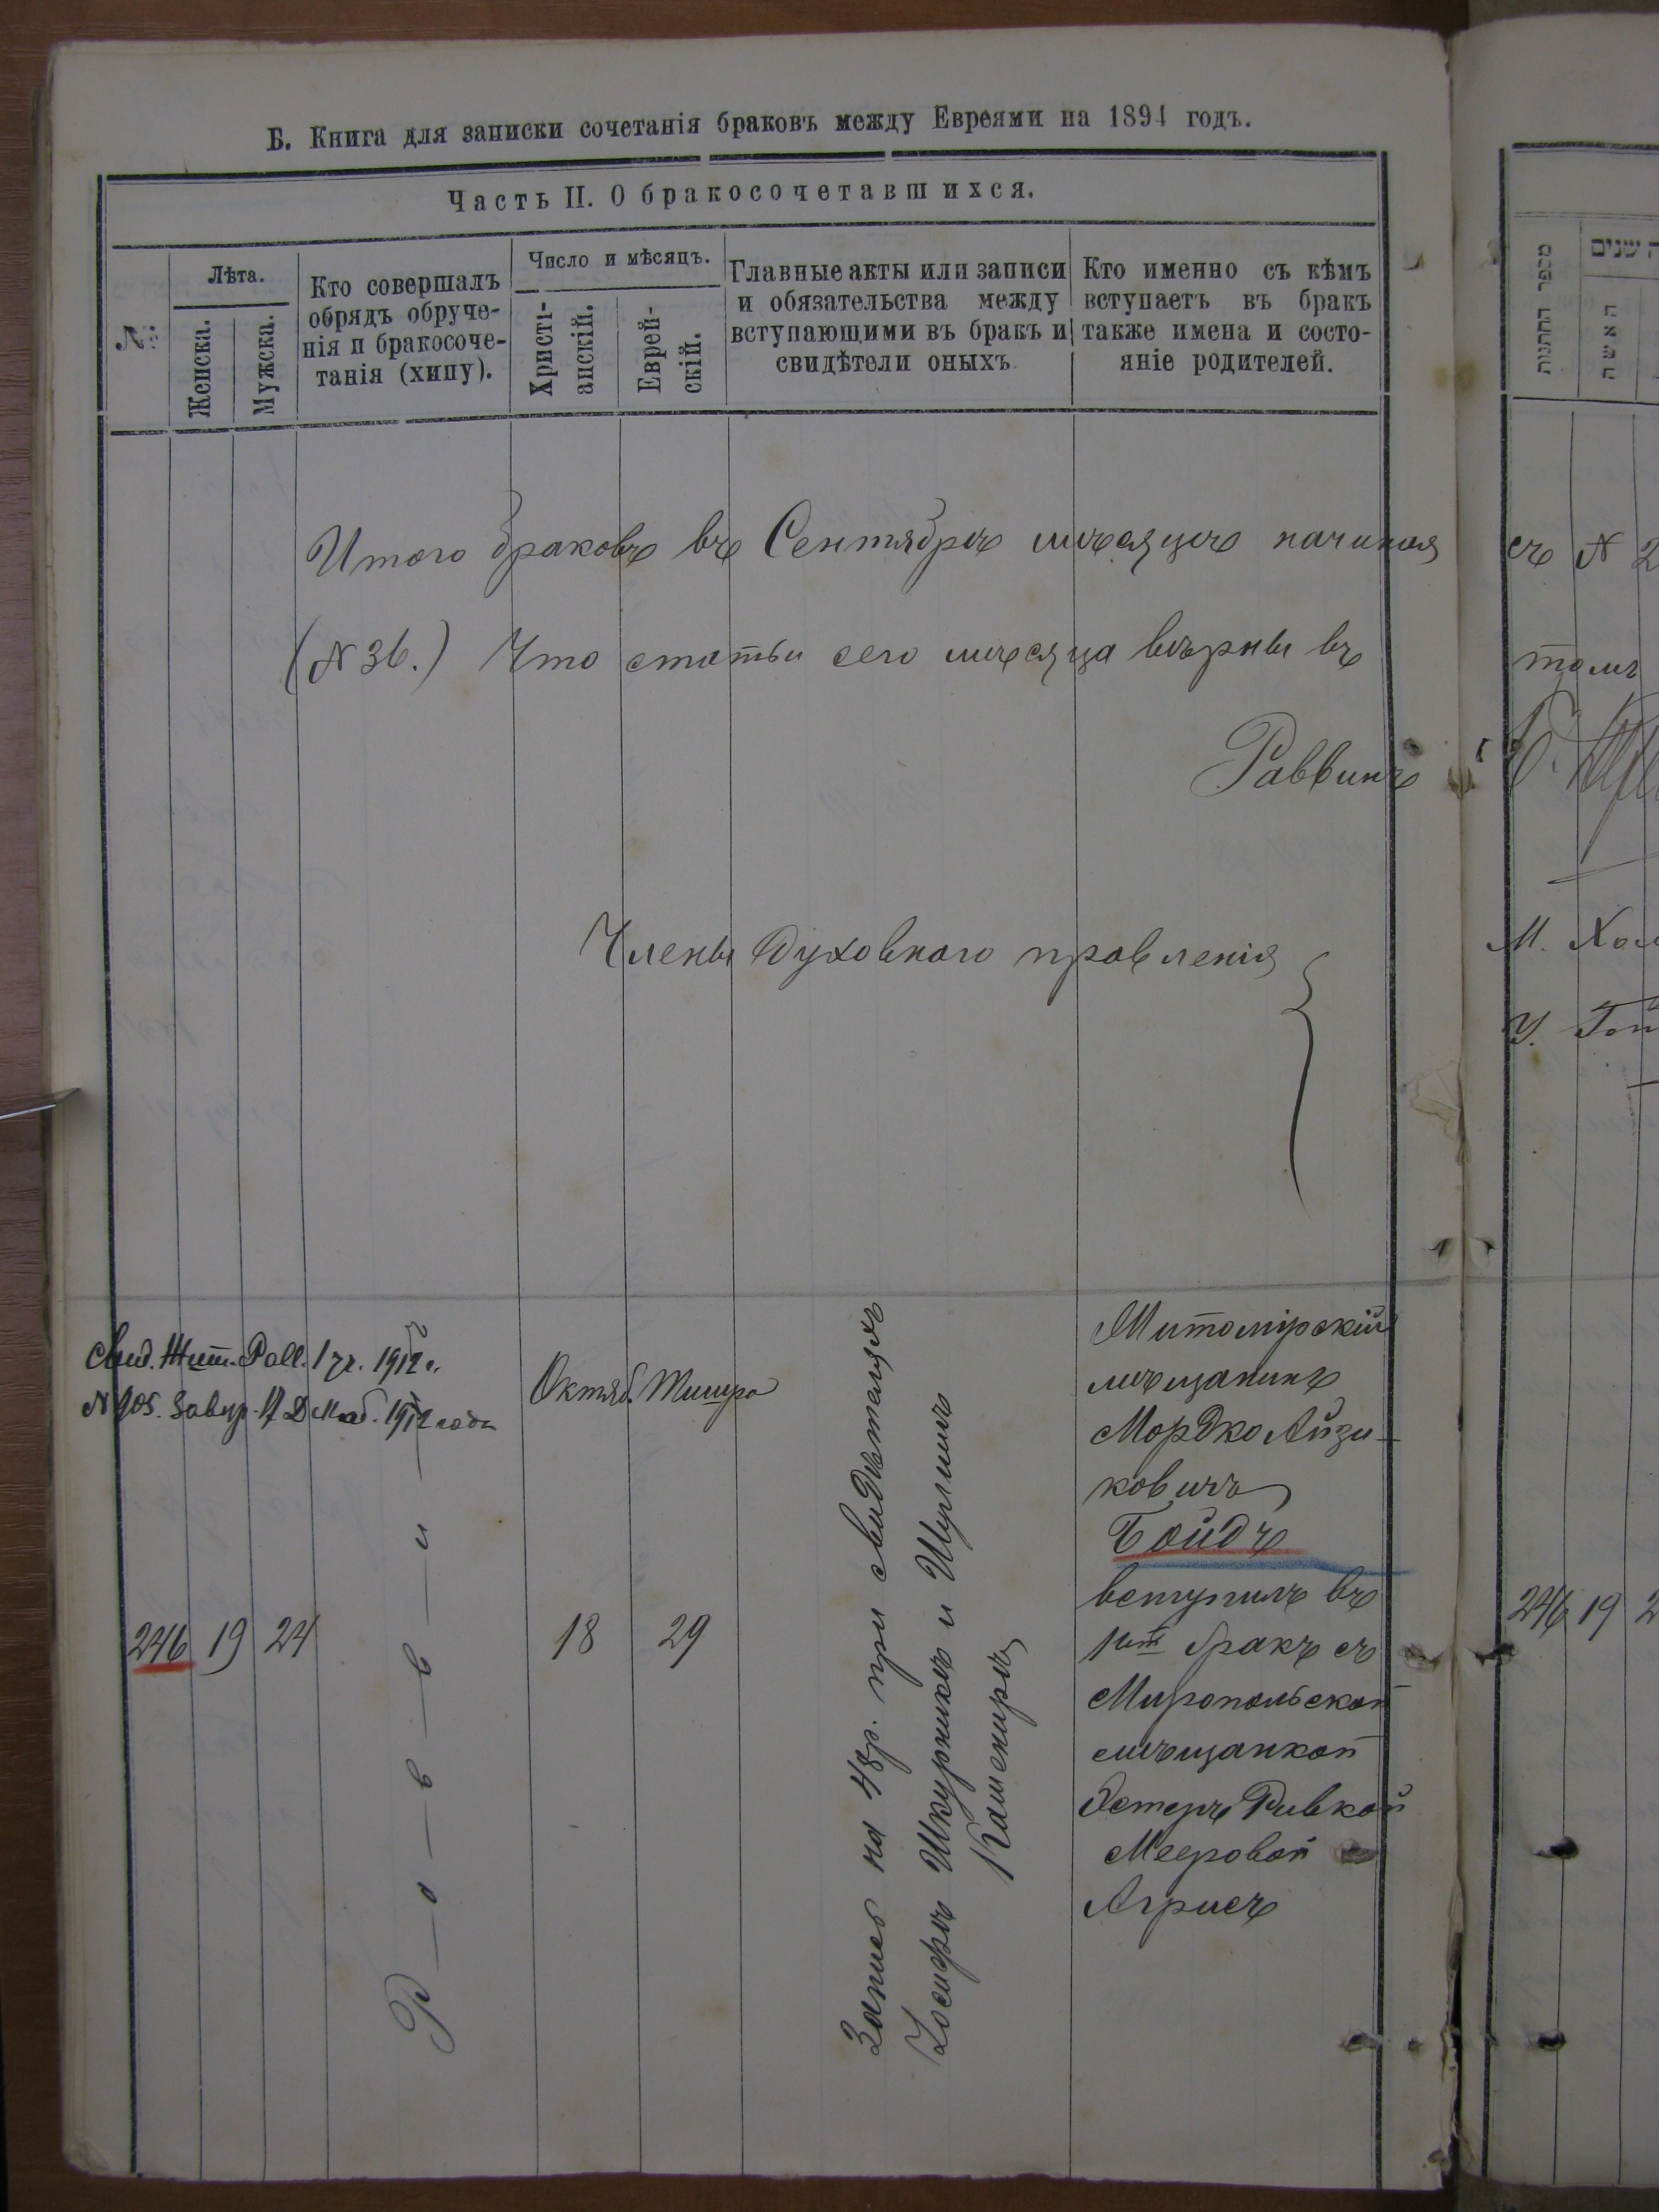 Б. Книга для записки сочетанія браковъ между Евреями на 1894 годъ.
Часть II. О бракосочетавшихся.
№
Лѣта.
Женска.
Мужска.
Кто совершалъ
обрядъ обруче-
нія и бракосоче-
танія (хипу).
Число и мѣсяцъ.
Христі-
анскій.
Еврей-
скій.
Главные акты или записи
и обязательства между
вступающими въ бракъ и
свидѣтели оныхъ.
Кто именно съ кѣмъ
вступаетъ въ бракъ
также имена и состо-
яніе родителей.
Итого браковъ въ Сентябрѣ мѣсяцѣ начиная
(№ 36.) Что статьи сего мѣсяца вѣрны въ
Раввинъ
Члены Духовнаго правленія
Свид. Жит. 1912 г.
№ 905. 1912 года
246 19 24
Р—а—в—в—и—н—ъ
Октяб. Тишра
18 29
Запись на 48 р. при свидѣтеляхъ
Іосифъ Шкурникъ и Шулимъ
Кашениръ
Житомірскій
мѣщанинъ
Мордко Айзи-
ковичъ
Бойдъ
вступилъ въ
1ый бракъ съ
Миропольской
мѣщанкой
Эстеръ Ривкой
Мееровой
Агрисъ
מספר החתונות
שנים
האשה
съ № 2
томъ
М.
У.
246 19 2